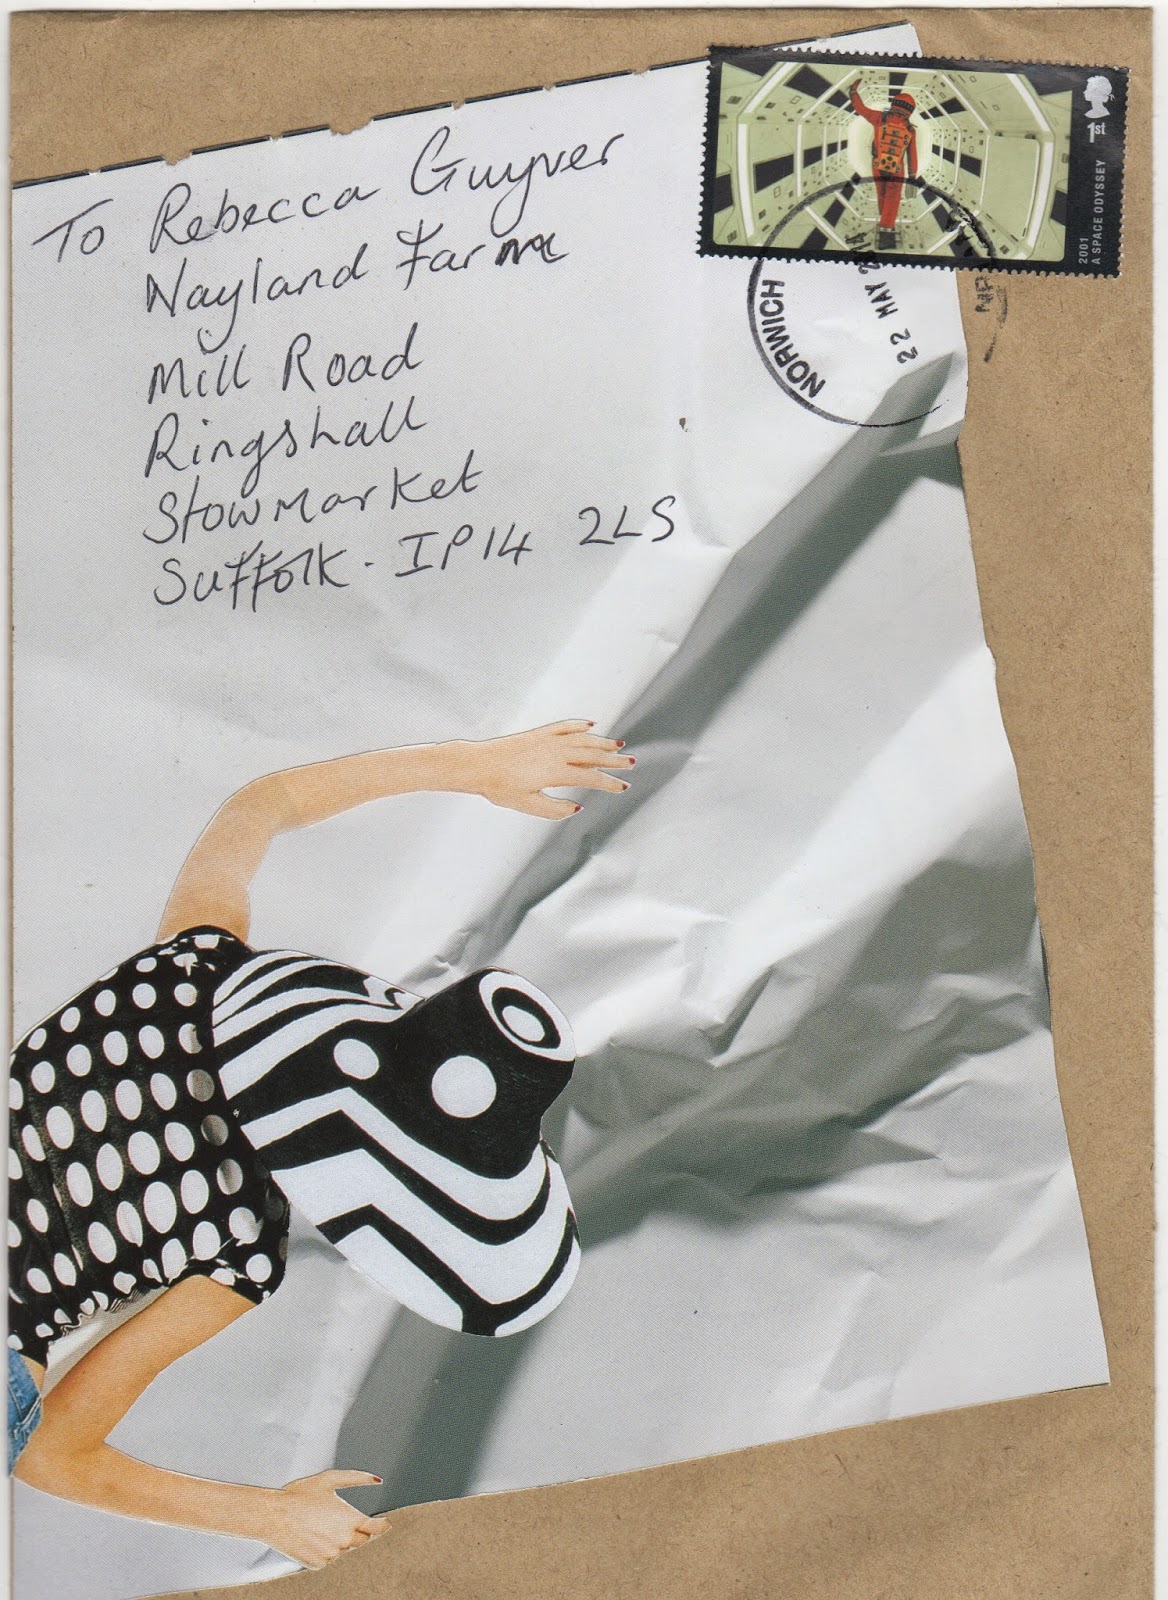 To Rebecca Guyver
Nayland Farm
Mill Road
Ringshall
Stowmarket
Suffolk - IP14 2LS
1st
2001
A SPACE ODYSSEY
NORWICH
22 MAY